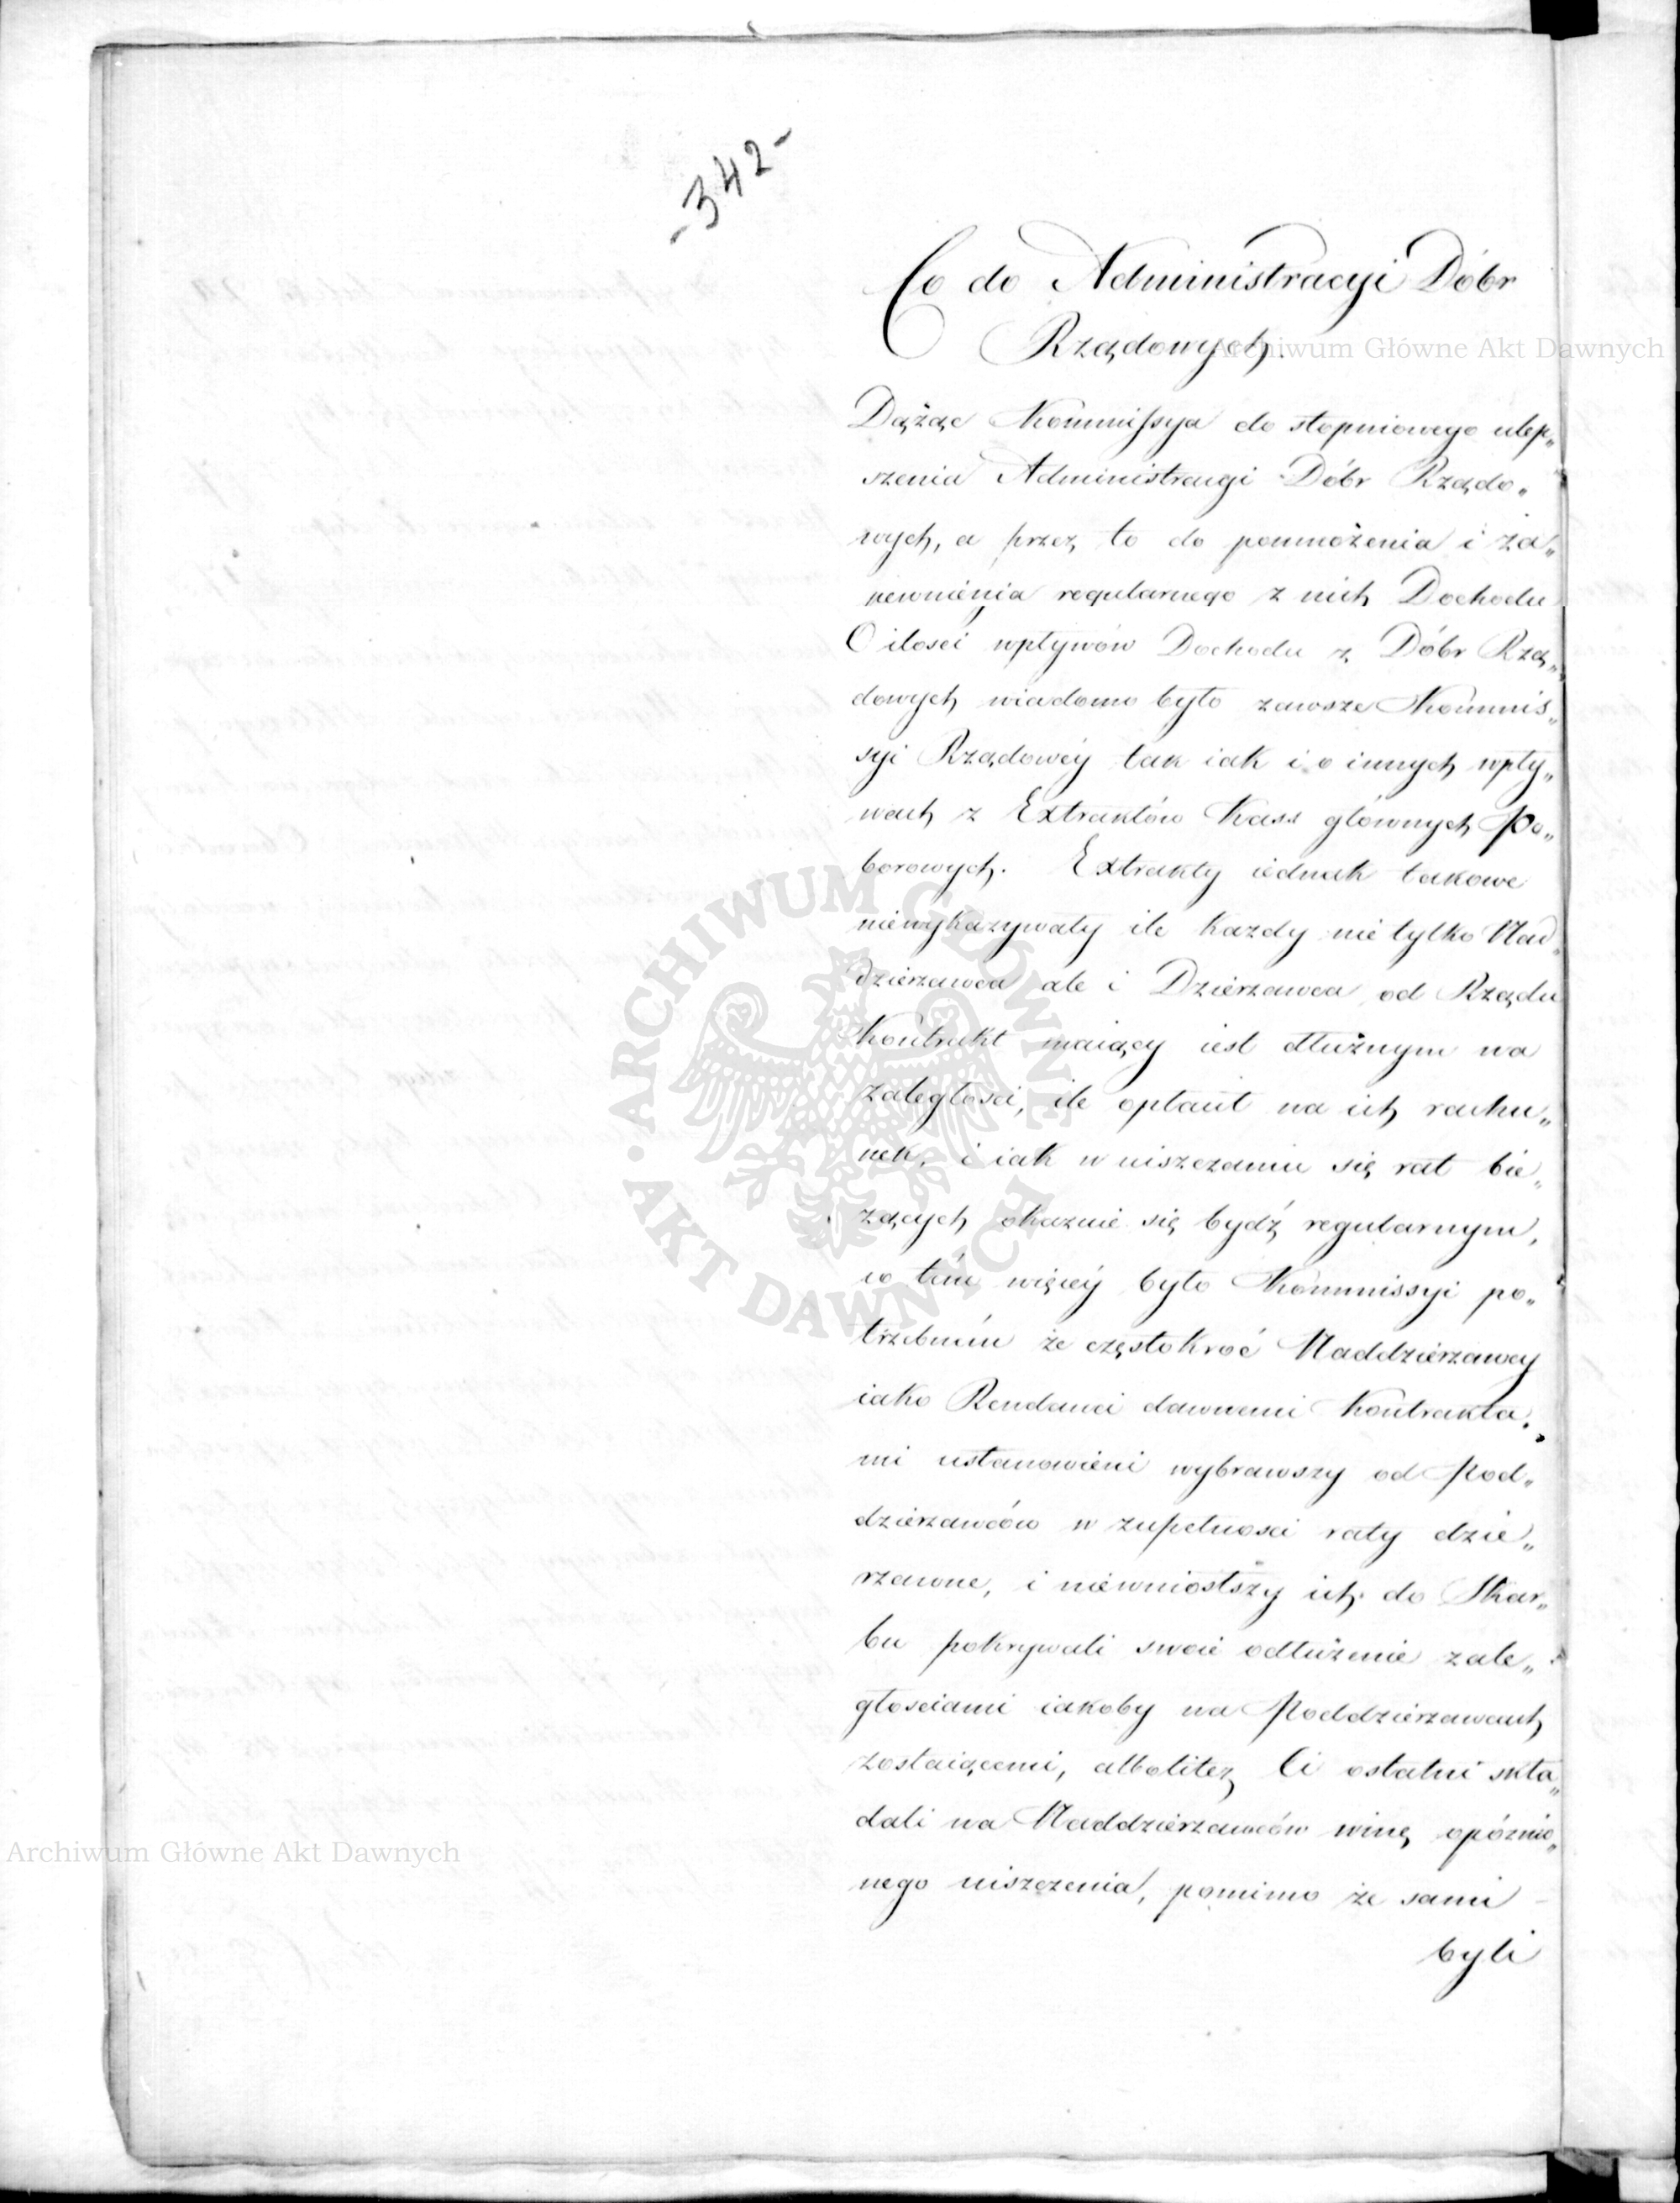 -342-
Co do Administracyi Dóbr
Rządowych.
Archiwum Główne Akt Dawnych
Dążąc Kommissya do stopniowego ulep„
szenia Administracyi Dóbr Rządo„
wych, a przez to do pomnożenia i za„
pewnienia regularnego z nich Dochodu
O ilości wpływów Dochodu z Dóbr Rzą„
dowych wiadomo było zawsze Kommis„
syi Rządowéy tak iak i o innych wpły„
wach z Extraktów Kass głównych Po„
borowych. Extrakty iednak takowe
niewykazywały ile każdy nie tylko Nad„
dzierzawca ale i Dzierzawca od Rządu
Kontrakt maiący iest dłużnym na
zaległości, ile opłacił na ich rachu„
nek, i iak w uiszczaniu się rat bie„
żących okazuie się bydź regularnym,
co tém więcéy było Kommissyi po„
trzebném że częstokroć Naddzierzawcy
iako Rendanci dawnemi Kontrakta„
mi ustanowieni wybrawszy od Pod„
dzierzawców w zupełności raty dzie„
rzawne, i niewniosłszy ich do Skar„
bu pokrywali swoie odłużenie zale„
głościami iakoby na Poddzierzawach
zostaiącemi, albolitez Ci ostatni skła„
dali na Naddzierzawców winę opóznio„
nego uiszczenia, pomimo że sami
byli
Archiwum Główne Akt Dawnych
ARCHIWUM GŁÓWNE · AKT DAWNYCH ·